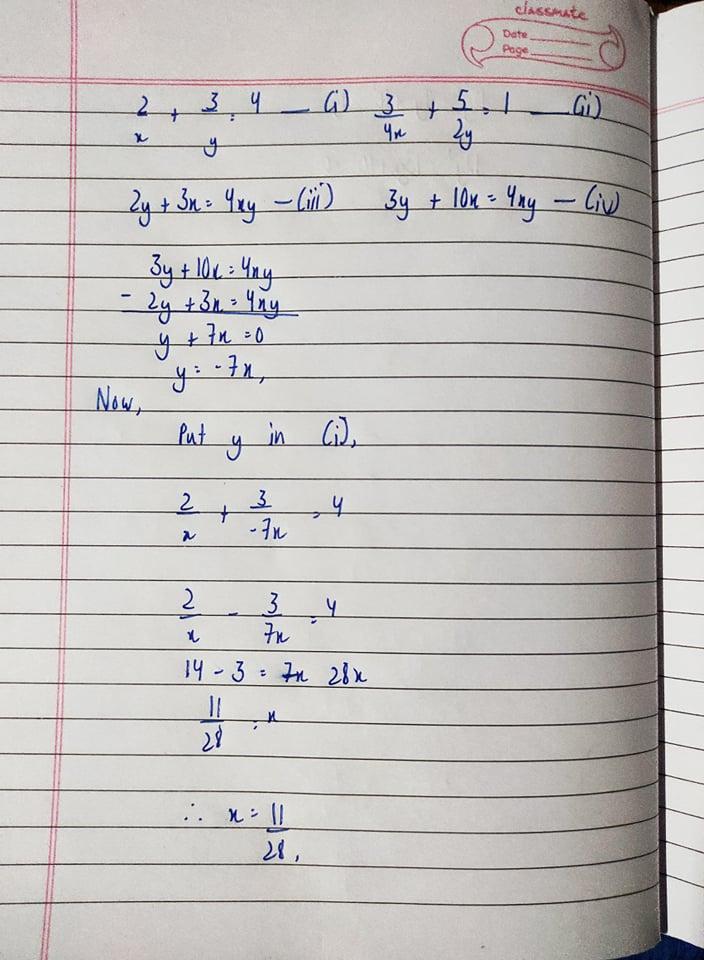 classmate
Date
Page
2/x + 3/y = 4 — (i) 3/4x + 5/2y = 1 — (ii)
2y + 3x = 4xy — (iii) 3y + 10x = 4xy — (iv)
3y + 10x = 4xy
- 2y + 3x = 4xy
y + 7x = 0
y = -7x,
Now,
Put y in (i),
2/x + 3/-7x = 4
2/x - 3/7x = 4
14 - 3 = 28x
11/28 = x
∴ x = 11/28,